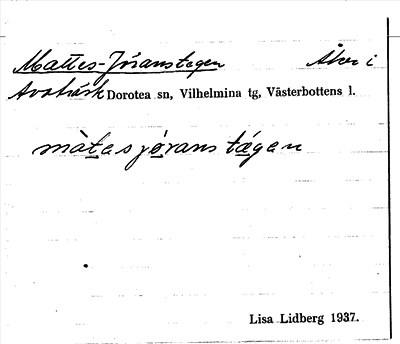 Mattes-Jöranstegen Åker i
Avaträsk Dorotea sn, Vilhelmina tg, Västerbottens l.
màtas jöranstégen
Lisa Lidberg 1937.